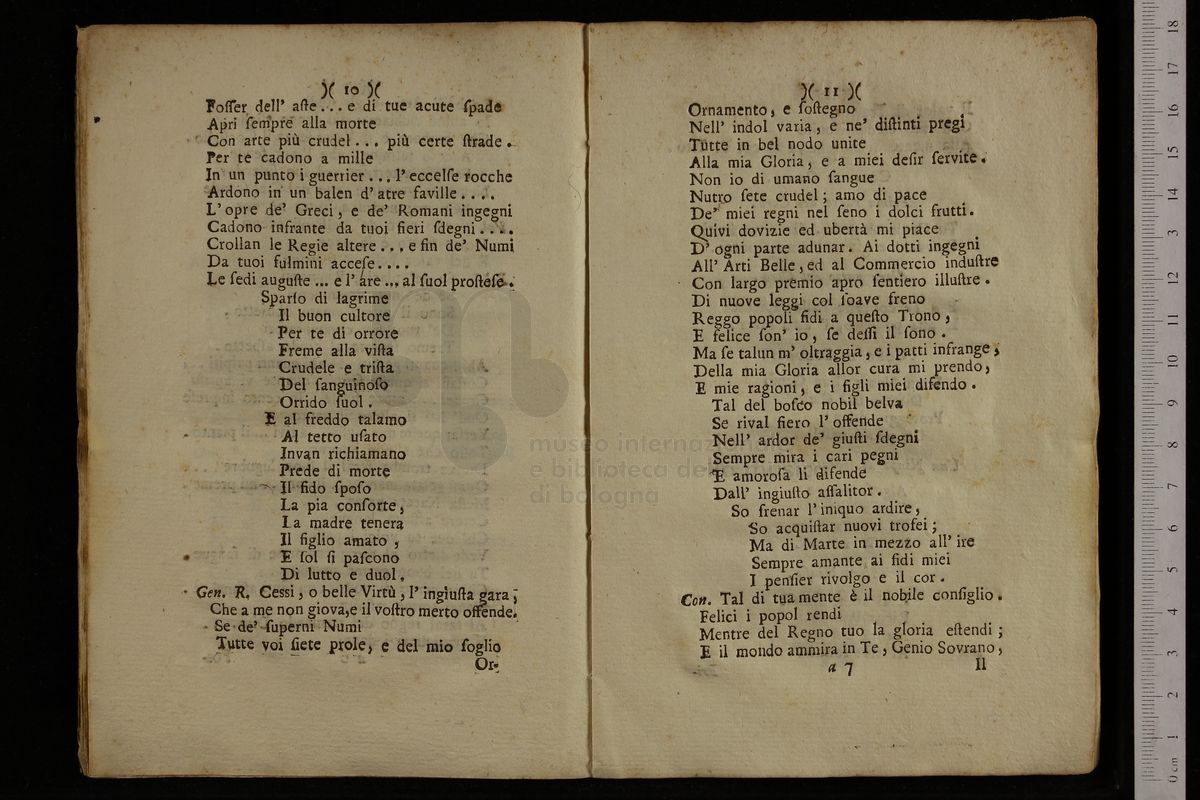 )( 10 )(
Foſſer dell' aſte... e di tue acute ſpade
Apri ſempre alla morte
Con arte più crudel... più certe ſtrade.
Per te cadono a mille
In un punto i guerrier... l' eccelſe rocche
Ardono in un balen d' atre faville....
L' opre de' Greci, e de' Romani ingegni
Cadono infrante da tuoi fieri ſdegni....
Crollan le Regie altere... e fin de' Numi
Da tuoi fulmini acceſe....
Le ſedi auguſte... e l' are... al ſuol proſteſe.
Sparſo di lagrime
Il buon cultore
Per te di orrore
Freme alla viſta
Crudele e triſta
Del ſanguinoſo
Orrido ſuol.
E al freddo talamo
Al tetto uſato
Invan richiamano
Prede di morte
Il fido ſpoſo
La pia conſorte,
La madre tenera
Il figlio amato,
E ſol ſi paſcono
Di lutto e duol.
Gen. R. Ceſſi, o belle Virtù, l' ingiuſta gara;
Che a me non giova, e il voſtro merto offende.
Se de' ſuperni Numi
Tutte voi ſiete prole, e del mio ſoglio
Or-
)( 11 )(
Ornamento, e ſoſtegno
Nell' indol varia, e ne' diſtinti pregi
Tutte in bel nodo unite
Alla mia Gloria, e a miei deſir ſervite.
Non io di umano ſangue
Nutro ſete crudel; amo di pace
De' miei regni nel ſeno i dolci frutti.
Quivi dovizie ed ubertà mi piace
D' ogni parte adunar. Ai dotti ingegni
All' Arti Belle, ed al Commercio induſtre
Con largo premio apro ſentiero illuſtre.
Di nuove leggi col ſoave freno
Reggo popoli fidi a queſto Trono,
E felice ſon' io, ſe deſſi il ſono.
Ma ſe talun m' oltraggia, e i patti infrange,
Della mia Gloria allor cura mi prendo,
E mie ragioni, e i figli miei difendo.
Tal del boſco nobil belva
Se rival fiero l' offende
Nell' ardor de' giuſti ſdegni
Sempre mira i cari pegni
E amoroſa li difende
Dall' ingiuſto aſſalitor.
So frenar l' iniquo ardire,
So acquiſtar nuovi trofei;
Ma di Marte in mezzo all' ire
Sempre amante ai fidi miei
I penſier rivolgo e il cor.
Con. Tal di tua mente è il nobile conſiglio.
Felici i popol rendi
Mentre del Regno tuo la gloria eſtendi;
E il mondo ammira in Te, Genio Sovrano,
a 7 Il
museo internaz
e biblioteca de
di bologna